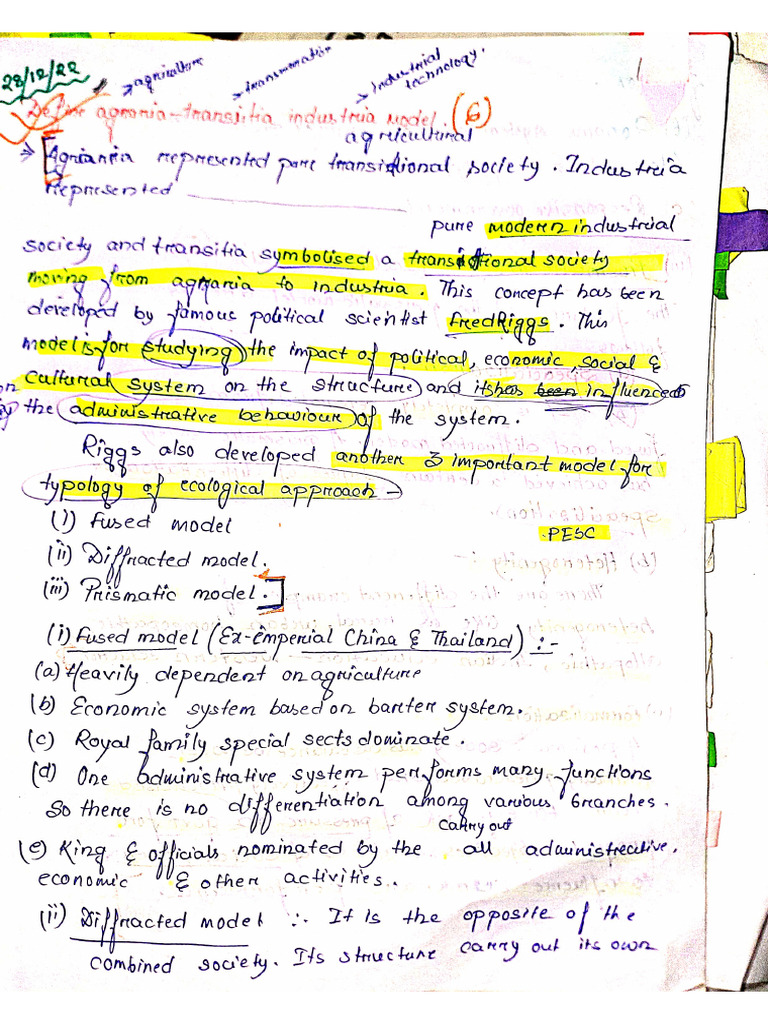 28/12/22
agriculture
transmoration
Industrial technology.
Define agraria-transitia industria Model. (6)
agricultural
Agriaria represented pure transidional society. Industria
Represented
pure modern industrial
society and transitia symbolised a transitional society
moving from agraria to industria. This concept has been
developed by famous political scientist Fred Riggs. This
model is for studying the impact of political, economic, social &
cultural system on the structure and its has been influenced
the administrative behaviour of the system.
Riggs also developed another 3 important model for
typology of ecological approach -
(i) fused model
PESC
(ii) Diffracted model.
(iii) Prismatic model.
(i) Fused model (Ex-emperial China & Thailand) :-
(a) Heavily dependent on agriculture
(b) Economic system based on barter system.
(c) Royal family special sects dominate.
(d) One administrative system performs many functions
So there is no differentiation among various branches.
carry out
(e) King & officials nominated by the all administrative,
economic & other activities.
(ii) Diffracted model :- It is the opposite of the
combined society. Its structure carry out its own